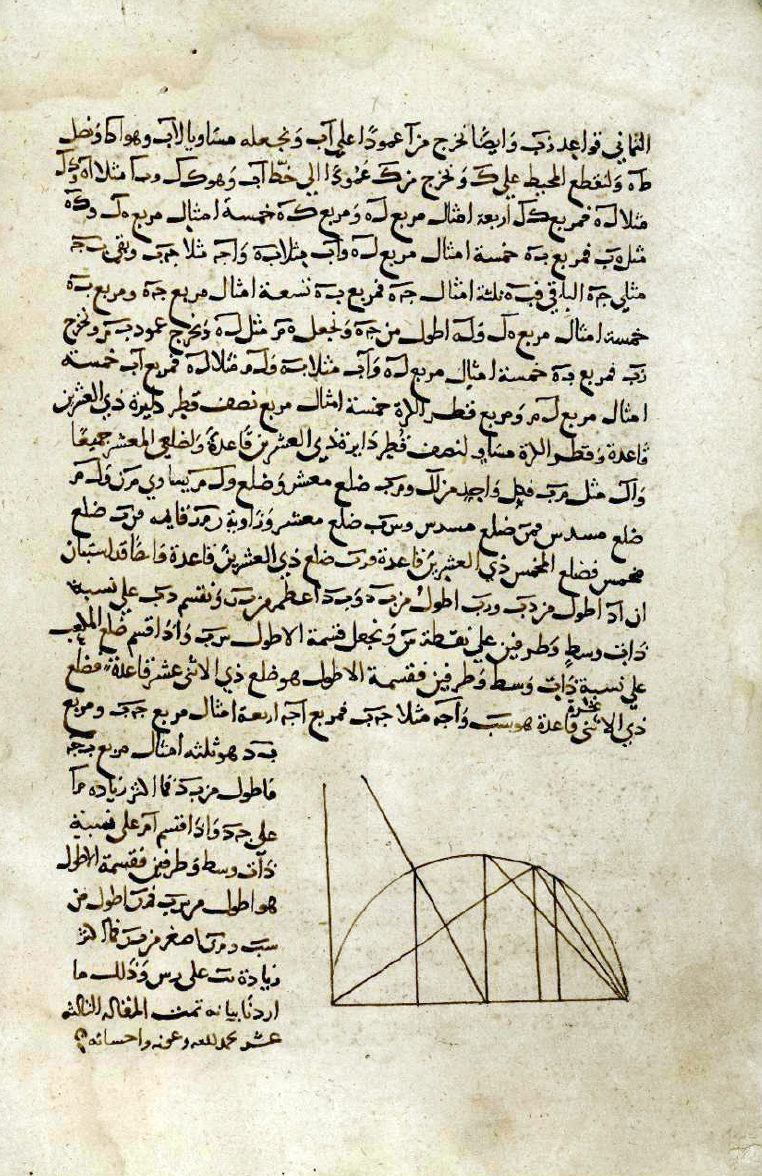 الثماني قواعد زب وايضا نخرج من آ عمودا على اب ونجعله مساويا لاب وهو اط ونصل
طه ولنقطع المحيط على ك ونخرج من ك عمودا الى خط اب وهو كل
مثلا له فمربع كل اربعة امثال مربع له ومربع كه خمسة امثال مربع هل وكه
مثل هب فمربع به خمسة امثال مربع له واب مثلا به واج مثلا جب وبقى بج
مثلى جه الباقي فبه ثلثة امثال جه فمربع به تسعة امثال مربع جه ومربع به
خمسة امثال مربع هل وله اطول من جه ونجعل هم مثل له ونخرج عمود من ونخرج
نب فمربع به خمسة امثال مربع له واب مثلا به ولم مثلا له فمربع اب خمسة
امثال مربع لم ومربع قطر الكرة خمسة امثال مربع نصف قطر دايرة ذي العشرين
قاعدة وقطر الكرة مساو لنصف قطر دايرة ذي العشرين قاعدة ولضلعي المعشر جميعا
وال مثل مب فكل واحد من ال ومب ضلع معشر وضلع ول م يساوي من ول م
ضلع مسدس فمن ضلع مسدس ومب ضلع معشر وزاوية نمب قايمه فنب ضلع
مخمس فضلع المخمس ذي العشرين قاعدة فنب ضلع ذي العشرين قاعدة فاما قد استبان
ان اد اطول من دب ودب اطول من به وبد اعظم من بن ونقسم دب على نسبة
ذات وسط وطرفين على نقطة س ونجعل قسمة الاطول سب واذا قسم ضلع المكعب
على نسبة ذات وسط وطرفين فقسمة الاطول هو ضلع ذي الاثنى عشر قاعدة فضلع
ذي الاثنى عشرة قاعدة هو سب واج مثلا جب فمربع اج اربعة امثال مربع جب ومربع
بد هو ثلثة امثال مربع بج
فاطول من بد
على جد واذا قسم ام على نسبة
ذات وسط وطرفين فقسمة الاطول
هو اطول من سب فمن اطول من
سب ومن اصغر من بن
زيادة نب على بس وذلك ما
اردنا بيانه تمت المقالة الثالثة
عشر بحمد الله وعونه واحسانه